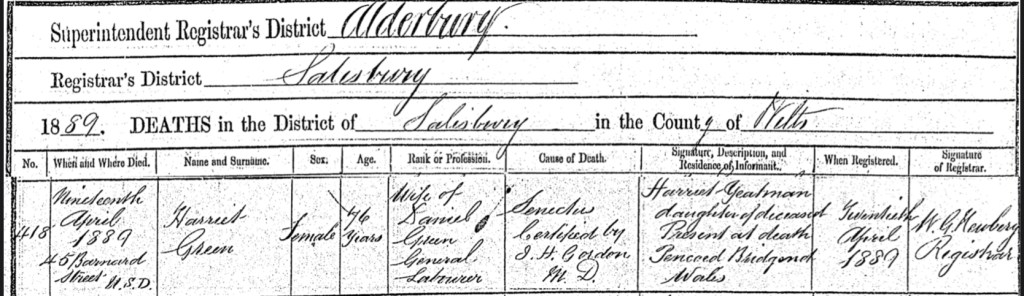 Superintendent Registrar's District Alderbury.
Registrar's District Salisbury
1889. DEATHS in the District of Salisbury in the County of Wilts
No. When and Where Died. Name and Surname. Sex. Age. Rank or Profession. Cause of Death. Signature, Description, and Residence of Informant. When Registered. Signature of Registrar.
418
Nineteenth
April
1889
45 Barnard
Street U.S.D.
Harriet
Green
Female
76
Years
Wife of
Daniel
Green
General
Labourer
Senectus
Certified by
J. H. Gordon
M. D.
Harriet Yeatman
daughter of deceased
Present at death
Pencoed Bridgend
Wales
Twentieth
April
1889
W. G. Newbery
Registrar